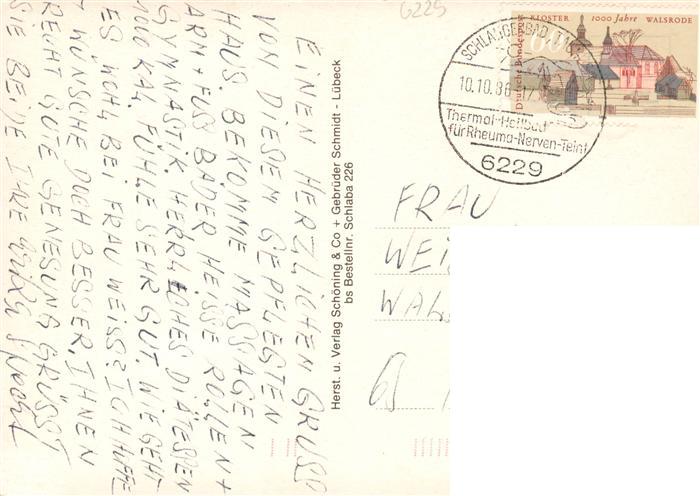 EINEN HERZLICHEN GRUSS
VON DIESEM GEPFLEGTEN
HAUS. BEKOMME MASSAGEN
ARM + FUSS BÄDER HEISSE ROLLEN +
GYMNASTIK. HERRLICHES DIÄTESSEN
1000 KAL, FÜHLE SEHR GUT. WIE GEHT
ES WOHL BEI FRAU WEISS? ICH HOFFE
+ WÜNSCHE DOCH BESSER, IHNEN
RECHT GUTE GENESUNG GRÜSST
SIE BEIDE IHRE
Herst. u. Verlag Schöning & Co + Gebrüder Schmidt - Lübeck
bs Bestellnr. Schlaba 226
6229
SCHLANGENBAD
10.10.86
Thermal-Heilbad
für Rheuma-Nerven-Teint
6229
KLOSTER 1000 Jahre WALSRODE
Deutsche Bundespost
60
FRAU
WEI
WAL
65